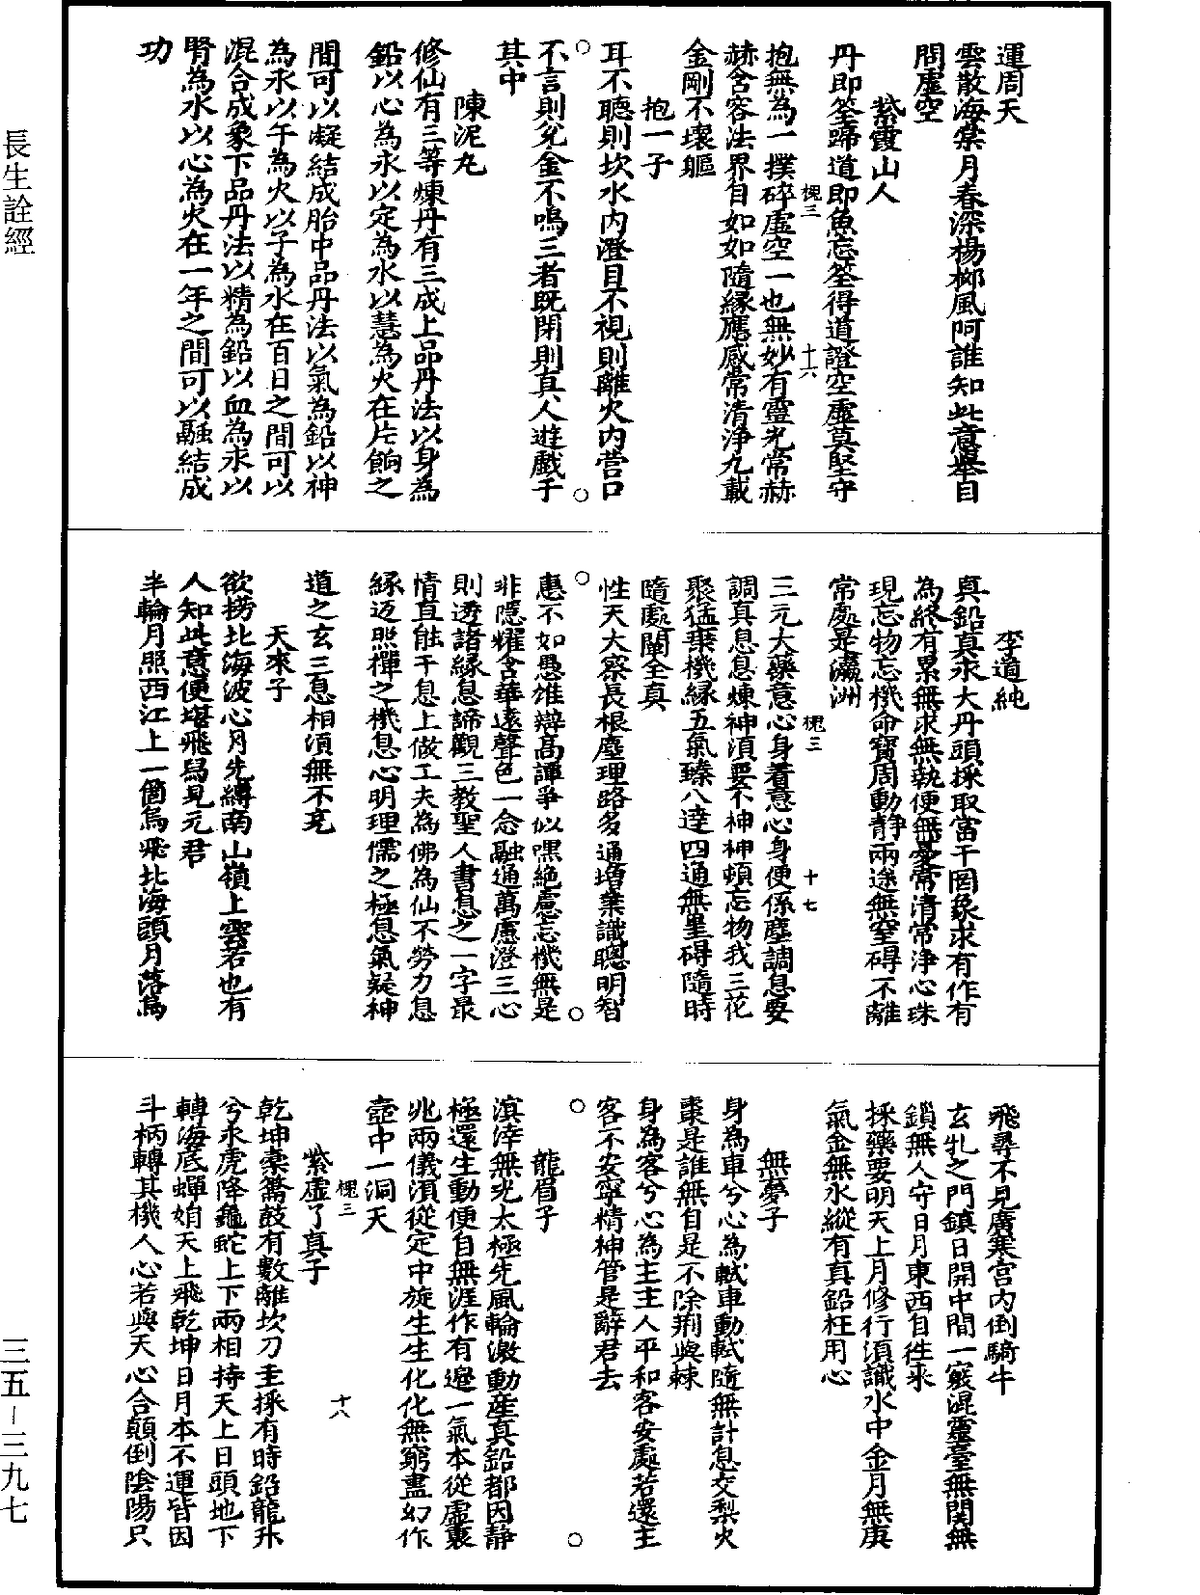 運周天
雲散海棠月春深楊柳風呵誰知此意舉目
問虛空
紫霞山人
丹即筌蹄道即魚忘筌得道證空虛莫堅守
抱無為一撲碎虛空一也無妙有靈光常赫
赫含容法界自如如隨緣應感常清淨九載
金剛不壞軀
抱一子
耳不聽則坎水內澄目不視則離火內営口
不言則兌金不鳴三者既閉則真人遊戲于
其中
陳泥丸
修仙有三等煉丹有三成上品丹法以身為
鉛以心為汞以定為水以慧為火在片餉之
間可以凝結成胎中品丹法以氣為鉛以神
為汞以午為火以子為水在百日之間可以
混合成象下品丹法以精為鉛以血為汞以
腎為水以心為火在一年之間可以融結成
功
李道純
真鉛真汞大丹頭採取當于罔象求有作有
為終有累無求無執便無憂常清常淨心珠
現忘物忘機命寶周動靜兩途無窒碍不離
常處是瀛洲
三元大藥意心身着意心身便係塵調息要
調真息息煉神須要不神神頓忘物我三花
聚猛棄機緣五氣臻八達四通無罣碍隨時
隨處闡全真
性天大察長根塵理路多通增業識聰明智
惠不如愚雄辯高譚爭似嘿絶慮忘機無是
非隱耀含華遠聲色一念融通萬慮澄三心
則透諸緣息諦觀三教聖人書息之一字最
情直能于息上做工夫為佛為仙不勞力息
緣迈照禪之機息心明理儒之極息氣凝神
道之玄三息相須無不克
天來子
欲撈北海波心月先縛南山嶺上雲若也有
人知此意便堪飛舄見元君
半輪月照西江上一箇烏飛北海頭月落烏
飛尋不見廣寒宮內倒騎牛
玄牝之門鎮日開中間一竅混靈臺無関無
鎖無人守日月東西自往來
採藥要明天上月修行須識水中金月無庚
氣金無水縱有真鉛枉用心
無夢子
身為車兮心為軾車動軾隨無計息交梨火
棗是誰無自是不除荊與棘
身為客兮心為主主人平和客安處若還主
客不安寧精神管是辭君去
龍眉子
滇涬無光太極先風輪激動產真鉛都因靜
極還生動便自無涯作有邊一氣本從虛裏
兆兩儀須從定中旋生生化化無窮盡幻作
壺中一洞天
紫虛了真子
乾坤橐籥鼓有數離坎刀圭採有時鉛龍升
兮汞虎降龜蛇上下兩相持天上日頭地下
轉海底蟬娟天上飛乾坤日月本不運皆因
斗柄轉其機人心若與天心合顛倒陰陽只
槐三
十六
槐三
十七
槐三
十八
長生詮經
三五－三九七